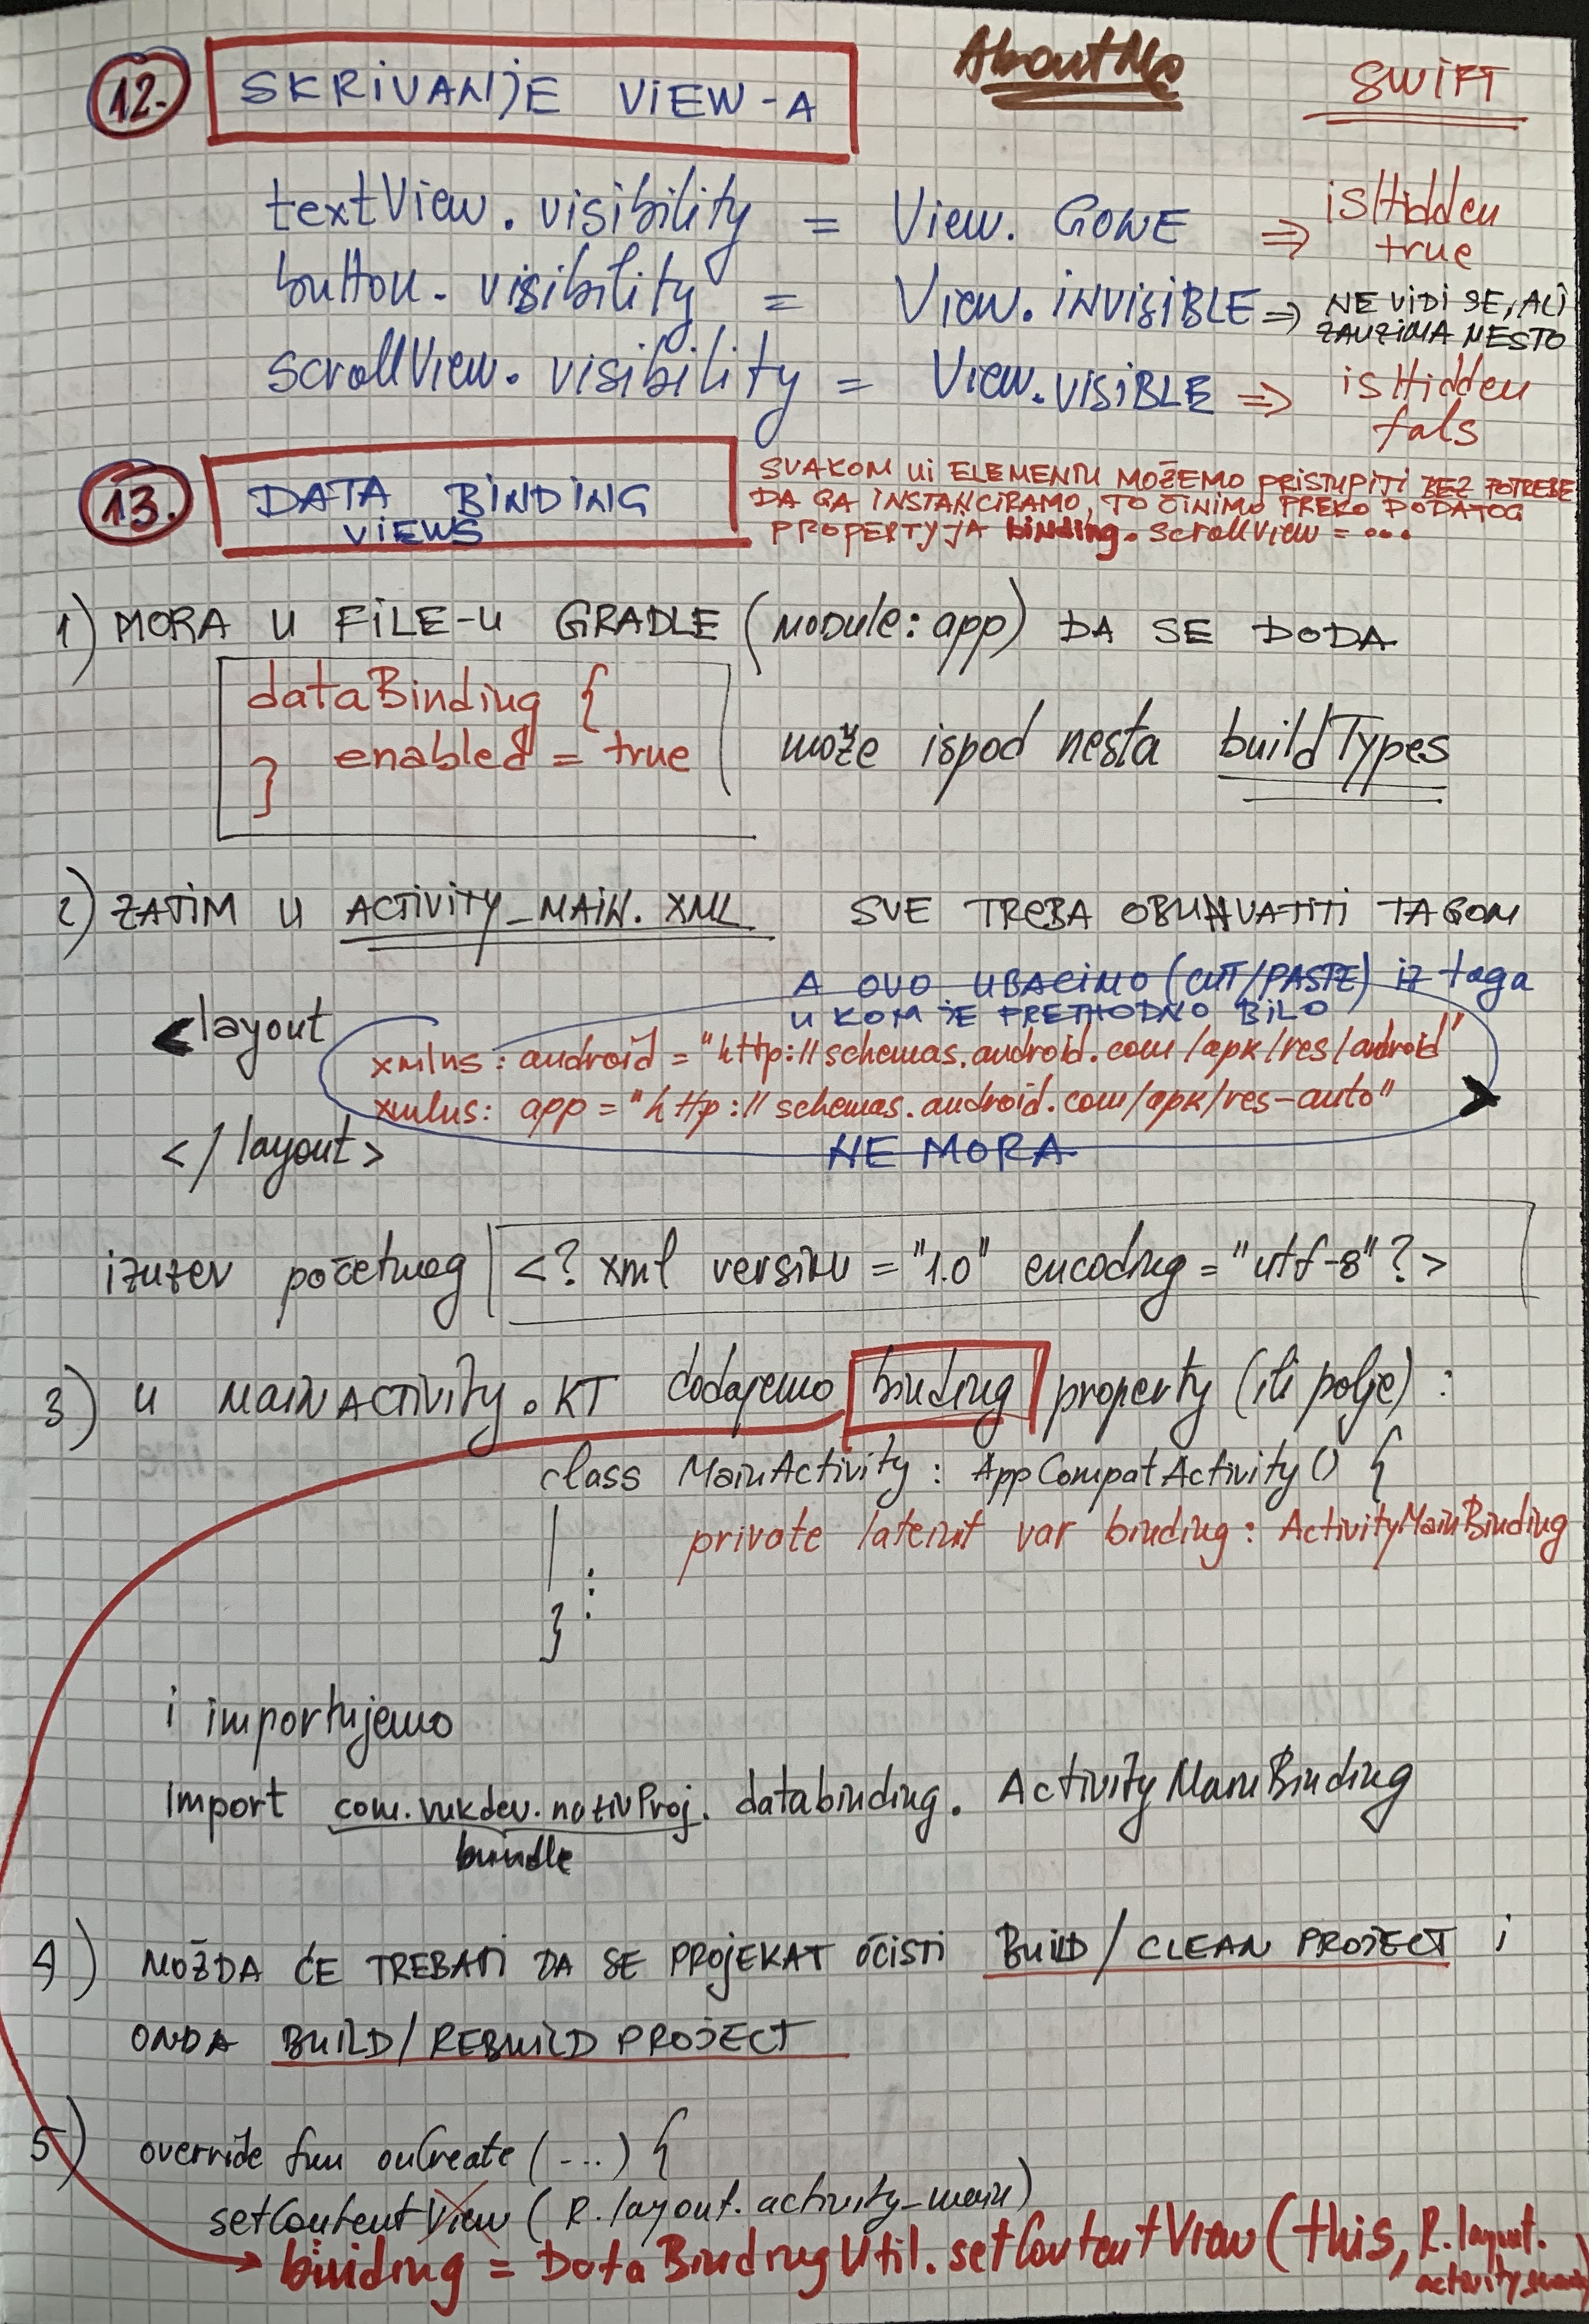 12. SKRIVANJE VIEW-A AboutMe SWIFT
textView.visibility = View.GONE ⇒ isHidden true
button.visibility = View.INVISIBLE ⇒ NE VIDI SE, ALI ZAUZIMA MESTO
scrollView.visibility = View.VISIBLE ⇒ isHidden fals
13. DATA BINDING VIEWS
SVAKOM UI ELEMENTU MOŽEMO PRISTUPITI BEZ POTREBE
DA GA INSTANCIRAMO, TO ČINIMO PREKO DODATOG
PROPERTYJA binding.scrollView = ...
1) MORA U FILE-U GRADLE (MODULE: app) DA SE DODA
dataBinding {
enabled = true
}
može ispod nesta buildTypes
2) ZATIM U ACTIVITY_MAIN.XML SVE TREBA OBUHVATITI TAGOM
A OVO UBACIMO (CUT/PASTE) iz taga
U KOM JE PRETHODNO BILO
<layout
xmlns:android = "http://schemas.android.com/apk/res/android"
xmlns:app = "http://schemas.android.com/apk/res-auto" >
</layout>
NE MORA
izuzev početnog <?xml version = "1.0" encoding = "utf-8"?>
3) U MAINACTIVITY.KT dodajemo binding property (ili polje) :
class MainActivity : AppCompatActivity() {
private lateinit var binding : ActivityMainBinding
:
}
i importujemo
import com.vukdev.nativProj.databinding.ActivityMainBinding
bundle
4) MOŽDA ĆE TREBATI DA SE PROJEKAT OČISTI BUILD/CLEAN PROJECT i
ONDA BUILD/REBUILD PROJECT
5) override fun onCreate (...) {
setContentView (R.layout.activity_main)
binding = DataBindingUtil.setContentView (this, R.layout.
activity_main)